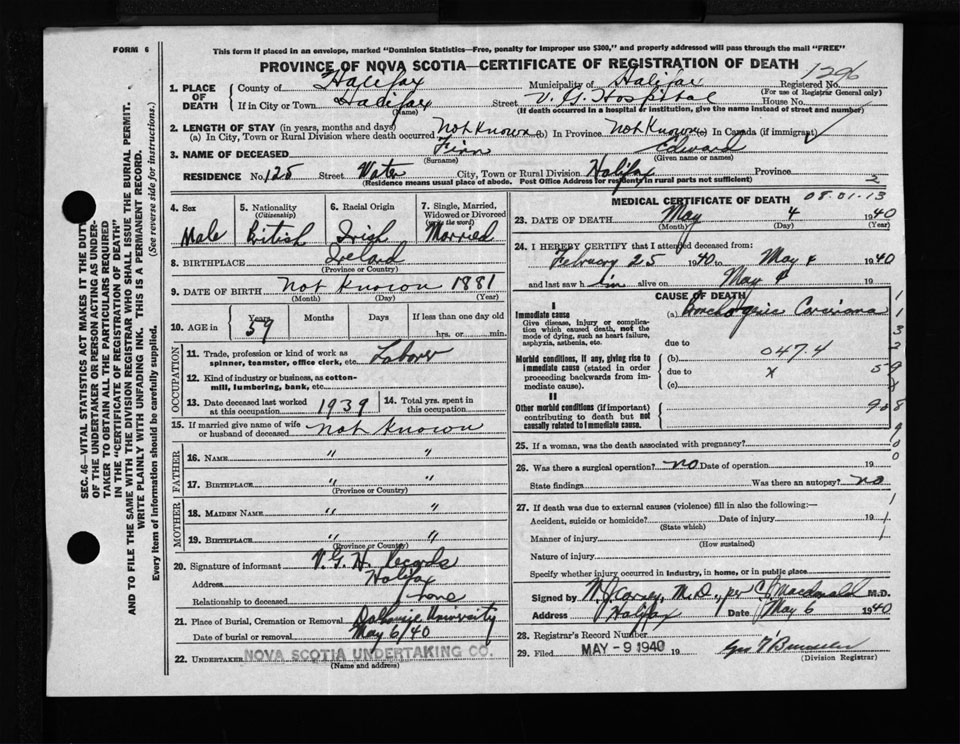 FORM 6
This form if placed in an envelope, marked "Dominion Statistics—Free, penalty for improper use $300," and properly addressed will pass through the mail "FREE"
PROVINCE OF NOVA SCOTIA—CERTIFICATE OF REGISTRATION OF DEATH
1. PLACE OF DEATH County of Halifax Municipality of Halifax Registered No. 1296
(For use of Registrar General only)
If in City or Town Halifax Street V. G. Hospital House No.
(Name) (If death occurred in a hospital or institution, give the name instead of street and number)
2. LENGTH OF STAY (in years, months and days)
(a) In City, Town or Rural Division where death occurred Not Known (b) In Province Not Known (c) In Canada (if immigrant)
3. NAME OF DECEASED Finn Edward
(Surname) (Given name or names)
RESIDENCE No. 125 Street Water City, Town or Rural Division Halifax Province
(Residence means usual place of abode. Post Office Address for residents in rural parts not sufficient) 2
4. Sex Male
5. Nationality (Citizenship) British
6. Racial Origin Irish
7. Single, Married, Widowed or Divorced (write the word) Married
8. BIRTHPLACE Ireland
(Province or Country)
9. DATE OF BIRTH Not Known 1881
(Month) (Day) (Year)
10. AGE in Years 59 Months Days If less than one day old
hrs. or min.
OCCUPATION
11. Trade, profession or kind of work as spinner, teamster, office clerk, etc. Laborer
12. Kind of industry or business, as cotton-mill, lumbering, bank, etc.
13. Date deceased last worked at this occupation 1939
14. Total yrs. spent in this occupation
15. If married give name of wife or husband of deceased Not Known
FATHER
16. NAME " "
17. BIRTHPLACE " "
(Province or Country)
MOTHER
18. MAIDEN NAME " "
19. BIRTHPLACE " "
(Province or Country)
20. Signature of informant V. G. H. Records
Address Halifax
Relationship to deceased None
21. Place of Burial, Cremation or Removal Dalhousie University
Date of burial or removal May 6/40
22. UNDERTAKER NOVA SCOTIA UNDERTAKING CO.
(Name and address)
MEDICAL CERTIFICATE OF DEATH 08.01.13
23. DATE OF DEATH May 4 1940
(Month) (Day) (Year)
24. I HEREBY CERTIFY that I attended deceased from:
February 25 1940 to May 4 1940
and last saw him alive on May 4 19
CAUSE OF DEATH
I
Immediate cause (a) Bronchogenic Carcinoma
Give disease, injury or complication which caused death, not the mode of dying, such as heart failure, asphyxia, asthenia, etc.
due to
Morbid conditions, if any, giving rise to immediate cause (stated in order proceeding backwards from immediate cause).
(b) 047.4
due to x
(c)
II
Other morbid conditions (if important) contributing to death but not causally related to immediate cause.
25. If a woman, was the death associated with pregnancy?
26. Was there a surgical operation? no Date of operation 19
State findings Was there an autopsy? no
27. If death was due to external causes (violence) fill in also the following:—
Accident, suicide or homicide? Date of injury 19
(State which)
Manner of injury
(How sustained)
Nature of injury
Specify whether injury occurred in industry, in home, or in public place
Signed by M.D., per Macdonald M.D.
Address Halifax Date May 6 1940
28. Registrar's Record Number
29. Filed MAY - 9 1940 19
(Division Registrar)
SEC. 46—VITAL STATISTICS ACT MAKES IT THE DUTY
OF THE UNDERTAKER OR PERSON ACTING AS UNDER-
TAKER TO OBTAIN ALL THE PARTICULARS REQUIRED
IN THE "CERTIFICATE OF REGISTRATION OF DEATH"
AND TO FILE THE SAME WITH THE DIVISION REGISTRAR WHO SHALL ISSUE THE BURIAL PERMIT.
WRITE PLAINLY WITH UNFADING INK. THIS IS A PERMANENT RECORD.
Every item of information should be carefully supplied. (See reverse side for instructions.)